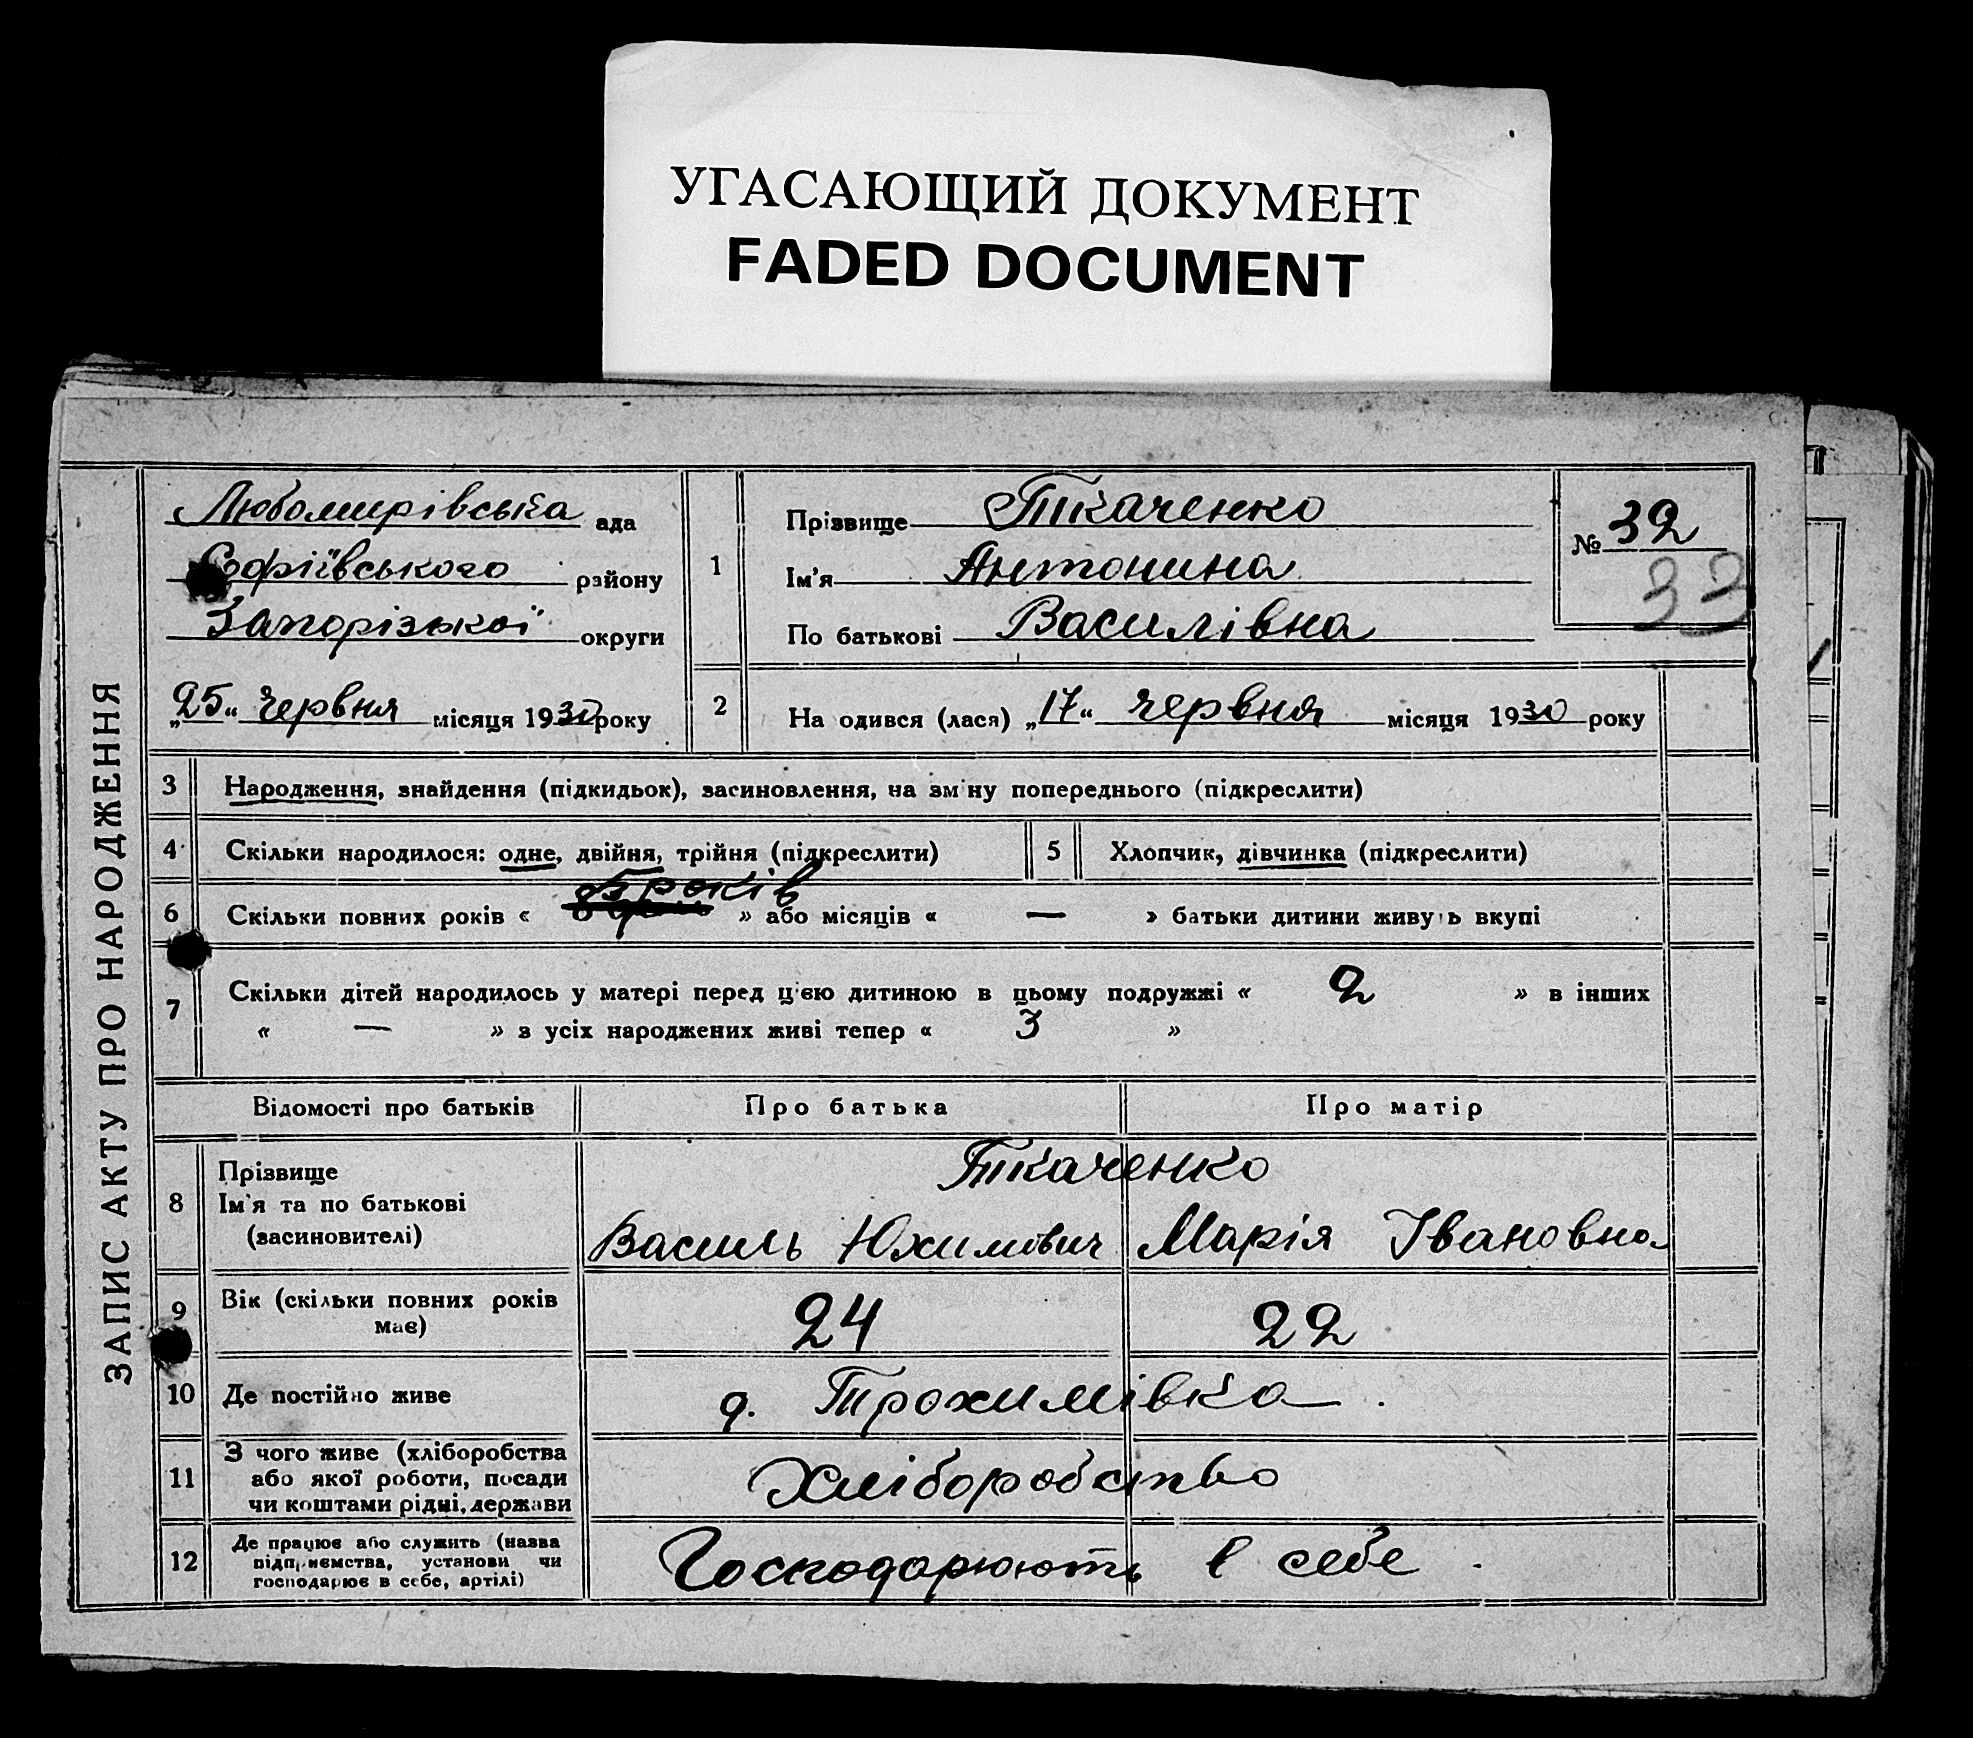 УГАСАЮЩИЙ ДОКУМЕНТ
FADED DOCUMENT
ЗАПИС АКТУ ПРО НАРОДЖЕННЯ
Любомирівська ада
Софіївського району
Запорізької округи
„25“ червня місяця 1930 року
1
Прізвище Ткаченко
Ім'я Антонина
По батькові Василівна
№ 32
33
2 На одився (лася) „17“ червня місяця 1930 року
3 Народження, знайдення (підкидьок), засиновлення, на зм ну попереднього (підкреслити)
4 Скільки народилося: одне, двійня, трійня (підкреслити) 5 Хлопчик, дівчинка (підкреслити)
6 Скільки повних років « 5 років » або місяців « — » батьки дитини живуть вкупі
7 Скільки дітей народилось у матері перед ц'єю дитиною в цьому подружжі « 2 » в інших
« — » з усіх народжених живі тепер « 3 »
Відомості про батьків Про батька Про матір
8 Прізвище Ткаченко
Ім'я та по батькові
(засиновителі) Василь Юхимович Марія Івановна
9 Вік (скільки повних років
має) 24 22
10 Де постійно живе д. Трохимівка.
11 З чого живе (хліборобства
або якої роботи, посади
чи коштами рідні, держави Хліборобство
12 Де працює або служить (назва
підприємства, установи чи
господарює в себе, артілі) Господарюють в себе.